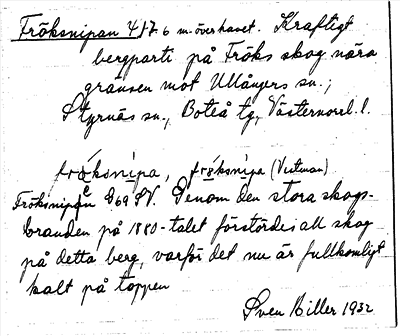 Fröksnipan 417.6 m. över havet. Kraftigt
bergparti på Fröks skog nära
gränsen mot Ullångers sn.;
Styrnäs sn., Boteå tg, Västernorrl. l.
fröksnipa, fröksnipa (Vestman)
Fröksnipan G69 SV. Genom den stora skogs-
branden på 1880-talet förstördes all skog
på detta berg, varför det nu är fullkomligt
kalt på toppen
Sven Biller 1932